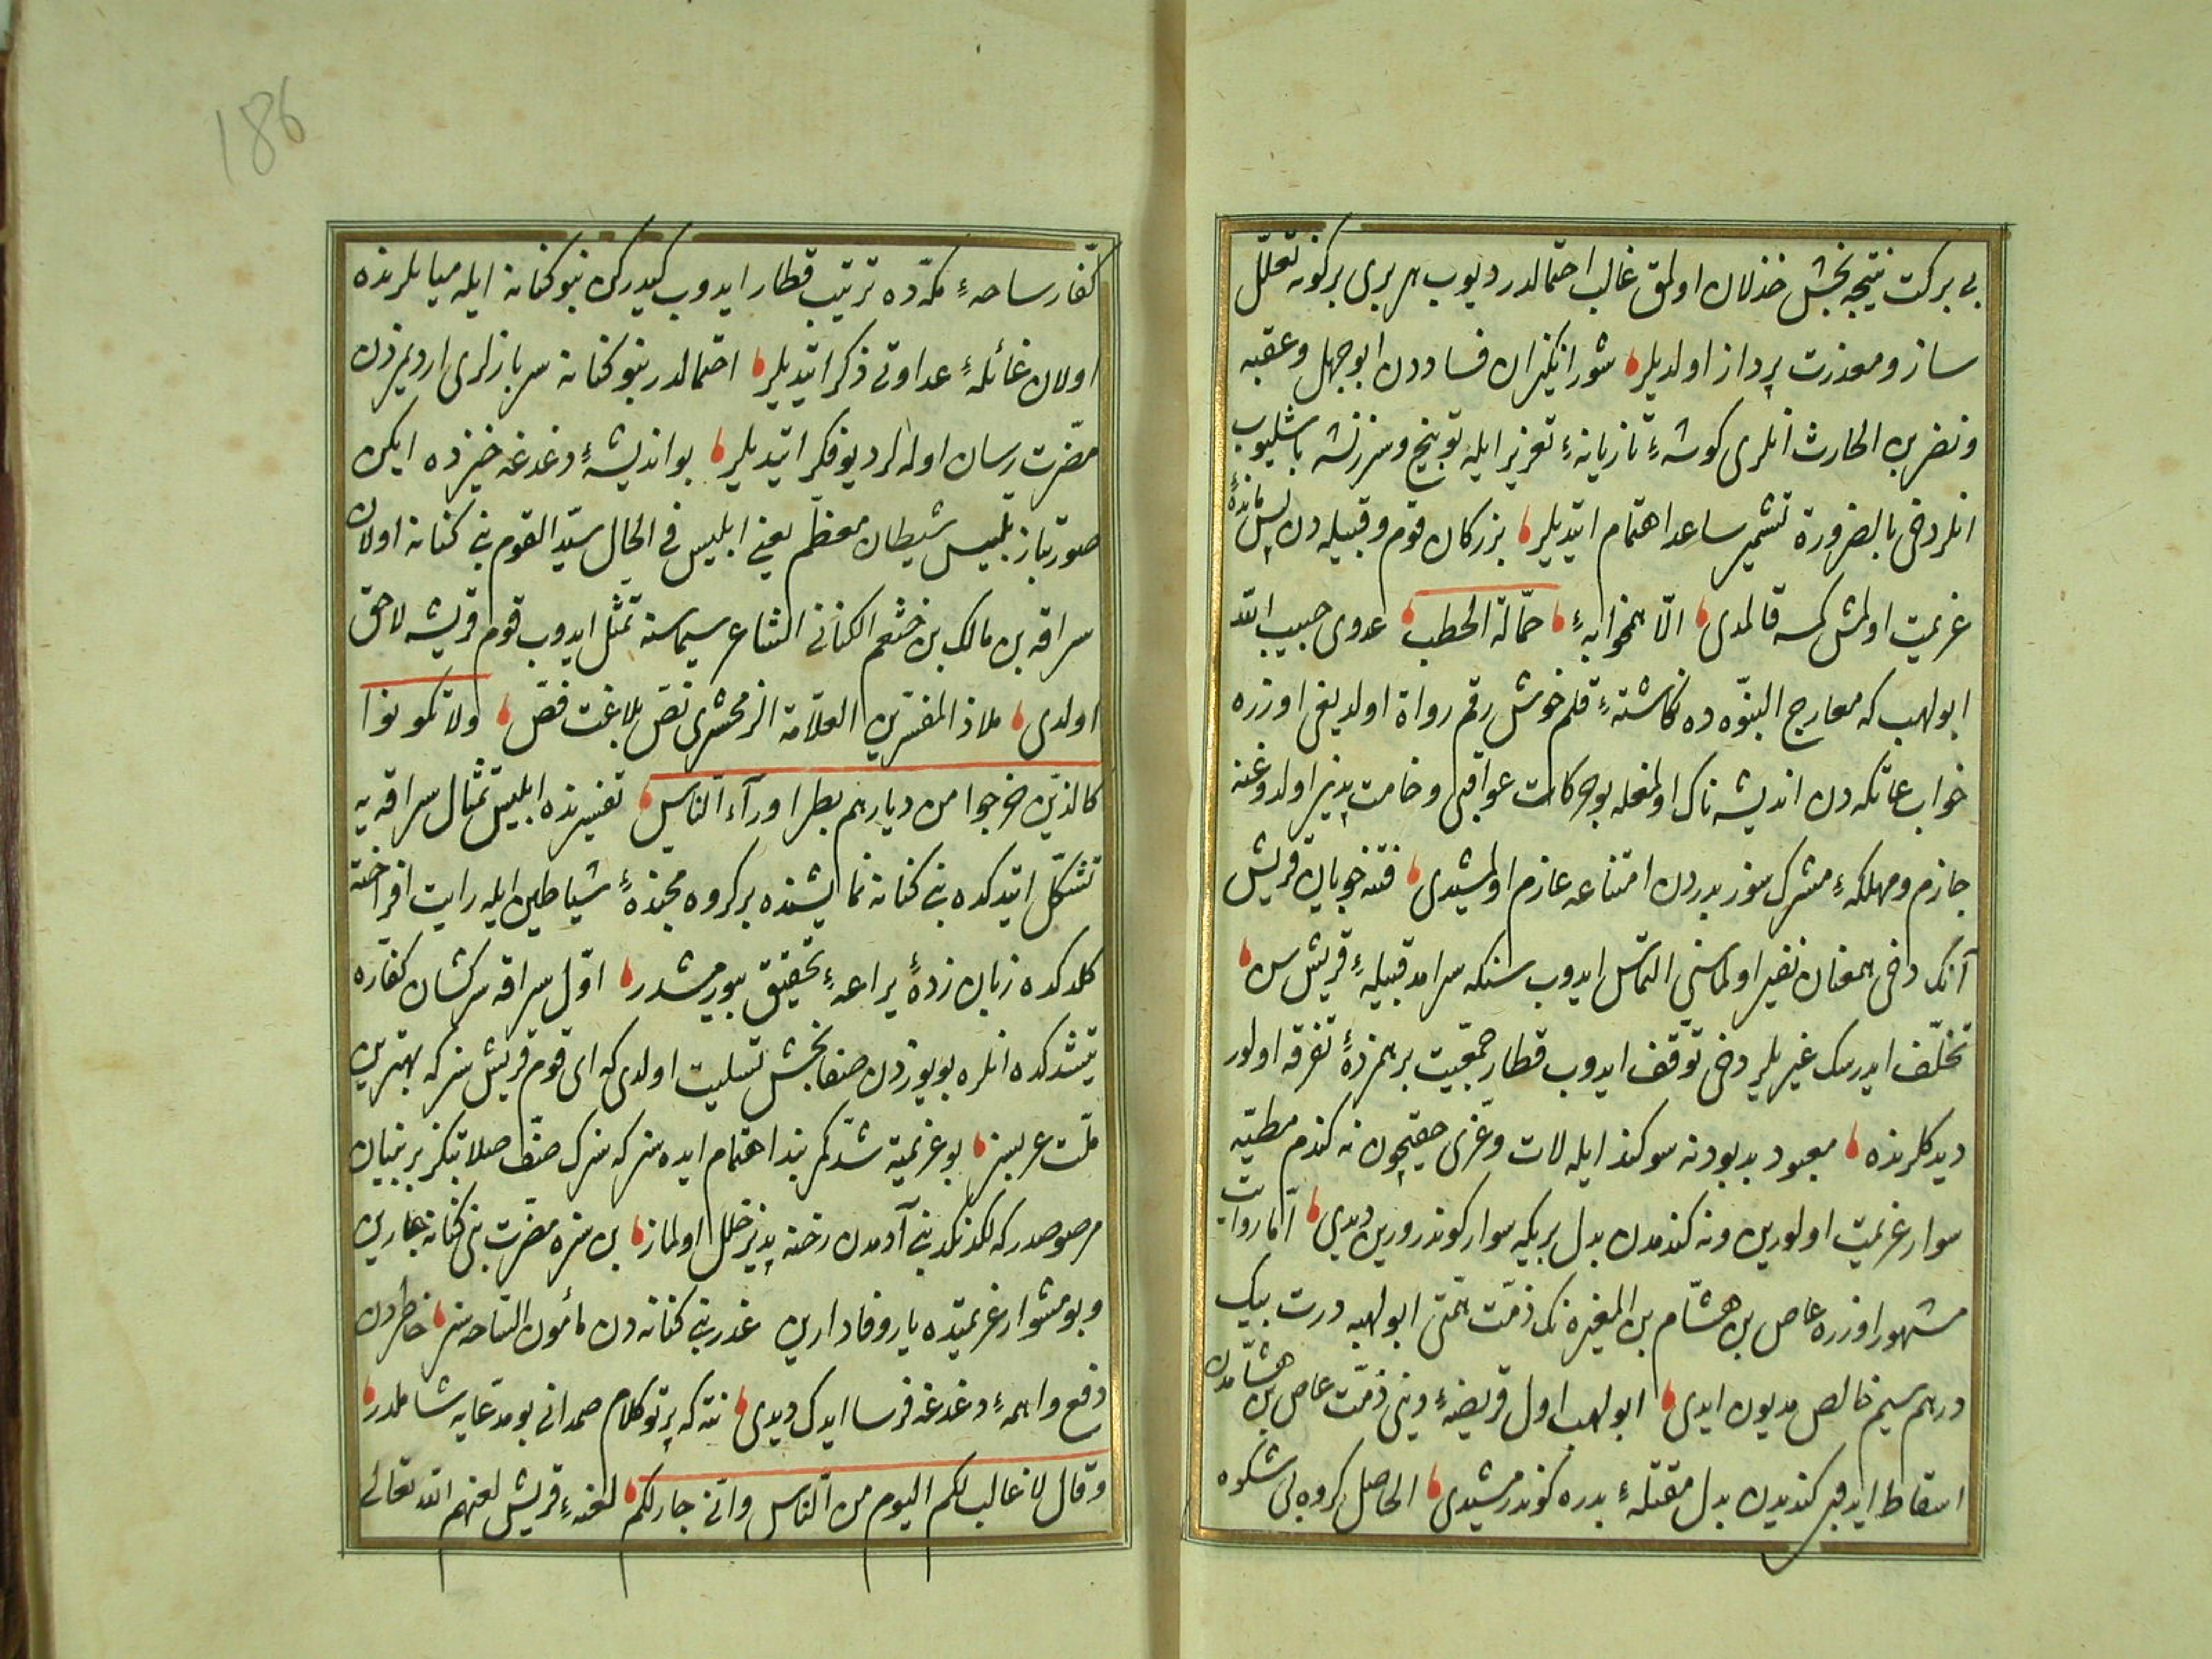 بی برکت نتیجه بخش خذلان اولمق غالب احتمالدر دیوب هر بری برکونه تعلّل
ساز و معذرت پرداز اولدیلر شور انکیزان فساددن ابو جهل و عقبه
و نضر بن الحارث انلری کوشهٔ تازیانهٔ تعزیر ایله توبیخ و سرزنشه باشلیوب
انلر دخی بالضرورة تشمیر ساعد اهتمام ایتدیلر بزرکان قوم و قبیله دن پس ماندهٔ
عزیمت اولمش کسه قالمدی الّا همخوابهٔ حمّالة الحطب عدوی حبیب الله
ابو لهب که معارج النبوّه ده نکاشتهٔ قلم خوش رقم رواة اولدیغی اوزره
خواب عاتکه دن اندیشه ناک اولمغله بو حرکات عواقبی وخامت پذیر اولدوغنه
جازم و مهلکهٔ مشرک سوز بدردن امتناعه عازم اولمشیدی فتنه جویان قریش
آنک دخی همعنان نفیر اولماسنی التماس ایدوب سنکه سرامد قبیلهٔ قریش سن
تخلّف ایدرسک غیریلر دخی توقّف ایدوب قطار جمعیّت برهم زدهٔ تفرقه اولور
دیدکلرنده معبود بد بودنه سوکند ایله لات و عزّی حقیچون نه کندم مطیّه
سوار عزیمت اولورین و نه کندمدن بدل بر یکه سوار کوندرورین دیدی امّا روایات
مشهور اوزره عاص بن هشام بن المغیره نک ذمّت همّتی ابو لهبه درت بیک
درهم سیم خالص مدیون ایدی ابو لهب اول قریضهٔ دینی ذمّت عاص بن هشامدن
اسقاط ایدوب کندیدن بدل مقتلهٔ بدره کوندرمشیدی الحاصل کروه بی شکوه
کفّار ساحهٔ مکّه ده ترتیب قطار ایدوب کیدرکن بنو کنانه ایله میانلرنده
اولان غائلهٔ عداوتی ذکر ایتدیلر احتمالدر بنو کنانه سربازلری اردیمزدن
مضرّت رسان اوله لر دیو فکر ایتدیلر بو اندیشهٔ دغدغه خیزده ایکن
صورتباز تلبیس شیطان معظم یعنی ابلیس فی الحال سیّد القوم بنی کنانه اولان
سراقه بن مالک بن خثعم الکنانی الشاعر سیماسنه تمثّل ایدوب قوم قریشه لاحق
اولدی ملاذ المفسّرین العلّامة الزمخشری نصّ بلاغت فصّ ولا تکونوا
کالذین خرجوا من دیارهم بطرا ورآء النّاس تفسیرنده ابلیس تمثال سراقه یه
تشکّل ایتدکده بنی کنانه نمایشنده بر کروه مجنّدهٔ شیاطین ایله رایت افراخته
کلدکده زبان زدهٔ یراعهٔ تحقیق بیورمشدر اوّل سراقه سرکشان کفّاره
یتشدکده انلره بو یوزدن صفا بخش تسلیت اولدی که ای قوم قریش سز که بهترین
ملّت عربسز بو عزیمته شدّ کمربند اهتمام ایده سز که سزک صفّ صلابتکز بر بنیان
مرصوصدر که لکدکد بنی آدمدن رخنه پذیر خلل اولماز بن سزه مضرّت بنی کنانه جارین
و بو مشوار عزیمتده یار وفادارین غدر بنی کنانه دن مأمون السّاحه سز خاطردن
دفع واهمهٔ دغدغه فرسا ایدک دیدی نته که پرتو کلام صمدانی بو مدّعایه شاملدر
وقال لا غالب لکم الیوم من النّاس وانّی جار لکم لعنهٔ قریش لعنهم الله تعالی
186